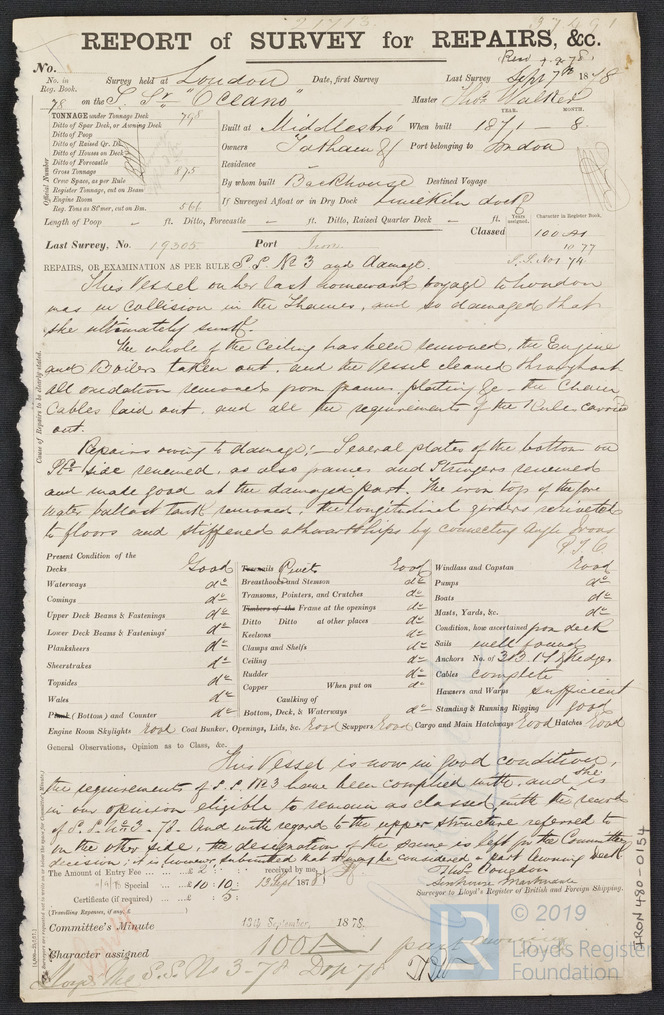 21713. 37491
REPORT of SURVEY for REPAIRS, &c.
No.
No. in Reg. Book.
Survey held at London Date, first Survey Last Survey Sept 7th 1878
78 on the S. Sr "Oceano" Master Thos. Walker
TONNAGE under Tonnage Deck 798
Ditto of Spar Deck, or Awning Deck
Ditto of Poop
Ditto of Raised Qr. Dk.
Ditto of Houses on Deck
Ditto of Forecastle
Gross Tonnage 875
Crew Space, as per Rule
Register Tonnage, cut on Beam
Engine Room
Reg. Tons as St'mer, cut on Bm. 566
Official Number
YEAR. MONTH.
Built at Middlesbro' When built 1871 - 8
Owners Port belonging to London
Residence
By whom built Backhouse Destined Voyage
If Surveyed Afloat or in Dry Dock Limekiln dock
Length of Poop - ft. Ditto, Forecastle - ft. Ditto, Raised Quarter Deck - ft.
Years assigned. Character in Register Book.
Classed 100 A1
10.77
Last Survey, No. 19305 Port
S.S. No 1 74
REPAIRS, OR EXAMINATION AS PER RULE S.S. No 3 and damage.
Cause of Repairs to be clearly stated.
This Vessel on her last homeward voyage to London
was in Collision in the Thames, and so damaged that
she ultimately sunk.
The whole of the Ceiling has been removed, the Engine
and Boilers taken out, and the Vessel cleaned throughout
all oxidation removed from frames, plating &c - the Chain
Cables laid out, and all the requirements of the Rule carried
out.
Repairs owing to damage:- Several plates of the bottom on
Pt. side renewed, as also frames and Stringers renewed
and made good at the damaged part. The iron top of the fore
water ballast tank removed, the longitudinal girders rerivetted
to floors and stiffened athwartships by connecting angle irons
P.T.O.
Present Condition of the
Decks Good
Waterways do
Comings do
Upper Deck Beams & Fastenings do
Lower Deck Beams & Fastenings do
Planksheers do
Sheerstrakes do
Topsides do
Wales do
Plank (Bottom) and Counter do
Treenails Rivets Good
Breasthooks and Stemson do
Transoms, Pointers, and Crutches do
Timbers of the Frame at the openings do
Ditto Ditto at other places do
Keelsons do
Clamps and Shelfs do
Ceiling do
Rudder do
Copper When put on do
Caulking of
Bottom, Deck, & Waterways do
Windlass and Capstan Good
Pumps do
Boats do
Masts, Yards, &c. do
Condition, how ascertained from deck
Sails well found
Anchors No. of 3B. 1S & Kedges
Cables complete
Hawsers and Warps sufficient
Standing & Running Rigging good
Engine Room Skylights Good Coal Bunker, Openings, Lids, &c. Good Scuppers Good Cargo and Main Hatchways Good Hatches Good
General Observations, Opinion as to Class, &c.
This Vessel is now in good condition,
the requirements of S.S. No 3 have been complied with, and is she
in our opinion eligible to remain as classed, with the record
of S.S. No 3-78. And with regard to the upper structure referred to
on the other side, the designation of the same is left for the Committee's
decision; it is however submitted that it may be considered a part Awning deck
The Amount of Entry Fee ... £ 2 : : received by me,
Special ... £10:10: 13 Sept 1878
Certificate (if required) ... £ : 5:
(Travelling Expenses, if any, £ )
Thos. Congdon
Surveyor to Lloyd's Register of British and Foreign Shipping.
Committee's Minute 13th September, 1878.
Character assigned 100A1 part awning
S.S. No 3-78
IRON 480-0154
© 2019
Lloyd's Register
Foundation
LR